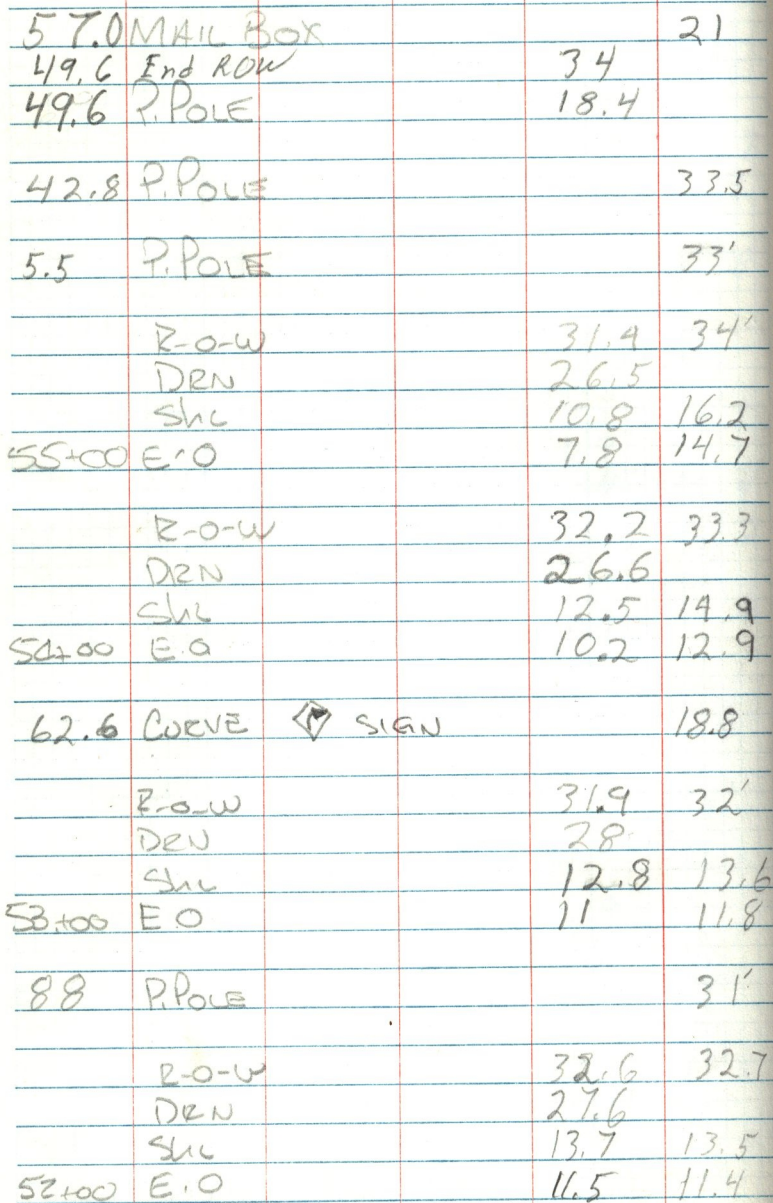 57.0 MAIL BOX 21
49.6 End ROW 34
49.6 P.POLE 18.4
42.8 P.POLE 33.5
5.5 P.POLE 33'
R-O-W 31.9 34'
DRN 26.5
Shl 10.8 16.2
55+00 E.O 7.8 14.7
R-O-W 32.2 33.3
DRN 26.6
Shl 12.5 14.9
54+00 E.O 10.2 12.9
62.6 CURVE SIGN 18.8
R-O-W 31.9 32'
DRN 28
Shl 12.8 13.6
53+00 E O 11 11.8
88 P.POLE 31'
R-O-W 32.6 32.7
DRN 27.6
Shl 13.7 13.5
52+00 E.O 11.5 11.4